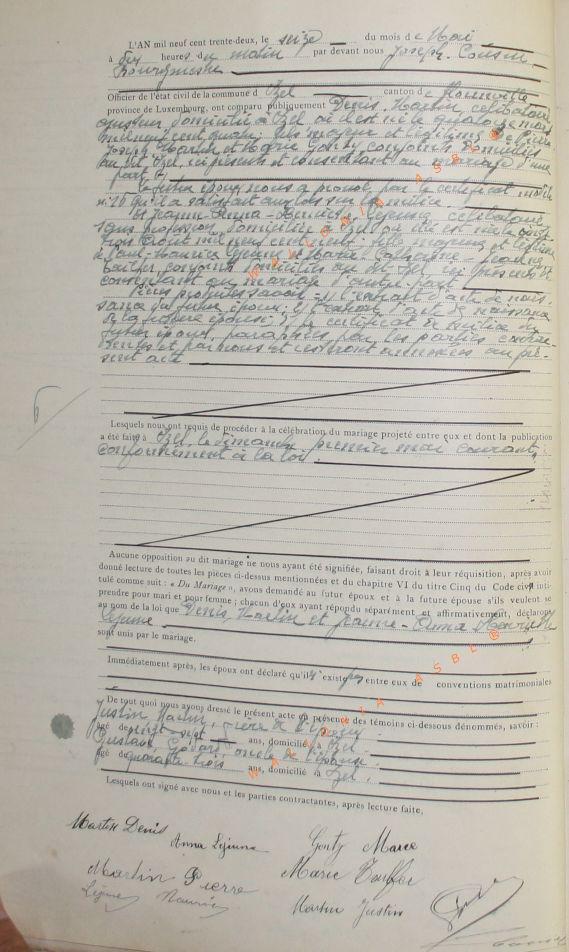 L'AN mil neuf cent trente-deux, le seize du mois de Mai
à dix heures du matin par devant nous Joseph Cousin
Bourgmestre
Officier de l'état civil de la commune d'Izel canton de Florenville
province de Luxembourg, ont comparu publiquement Denis Martin célibataire
domicilié à Izel où il est né le quatorze mars
mil neuf cent quatre; fils majeur et légitime de Pierre
Joseph Martin et conjoints domiciliés
au dit Izel, ici présents et consentant au mariage d'une
part
Le futur époux nous a prouvé par le certificat modèle
qu'il a satisfait aux lois sur la milice
Et Jeanne-Anna-Henriette Lejeune, célibataire
sans profession, domiciliée à Izel où elle est née le
mil neuf cent; fille majeure et légitime
de Paul-Maurice Lejeune et Marie-Catherine-
conjoints domiciliés au dit Izel, ici présents et
consentant au mariage d'autre part
Pièces produites savoir: l'extrait d'acte de nais-
sance du futur époux, l'extrait d'acte de naissance
de la future épouse, le certificat de milice du
futur époux, paraphées par les parties contrac-
tantes et par nous et resteront annexées au pré-
sent acte
Lesquels nous ont requis de procéder à la célébration du mariage projeté entre eux et dont la publication
a été faite à Izel, le dimanche premier mai courant,
conformément à la loi.
Aucune opposition au dit mariage ne nous ayant été signifiée, faisant droit à leur réquisition, après avoir
donné lecture de toutes les pièces ci-dessus mentionnées et du chapitre VI du titre Cinq du Code civil inti-
tulé comme suit : « Du Mariage », avons demandé au futur époux et à la future épouse s'ils veulent se
prendre pour mari et pour femme ; chacun d'eux ayant répondu séparément et affirmativement, déclarons
au nom de la loi que Denis Martin et Jeanne-Anna Henriette
Lejeune
sont unis par le mariage.
Immédiatement après, les époux ont déclaré qu'il n'existe pas entre eux de conventions matrimoniales
De tout quoi nous avons dressé le présent acte en présence des témoins ci-dessous dénommés, savoir :
Justin Martin, frère de l'époux
âgé de vingt sept ans, domicilié à Izel
Gustave Godard, oncle de l'épouse
âgé de quarante trois ans, domicilié à Izel.
Lesquels ont signé avec nous et les parties contractantes, après lecture faite,
Martin Denis
Anna Lejeune
Goutz Marie
Martin Pierre
Marie
Lejeune Maurice
Martin Justin
WALLONIA ASBL®
WALLONIA ASBL®